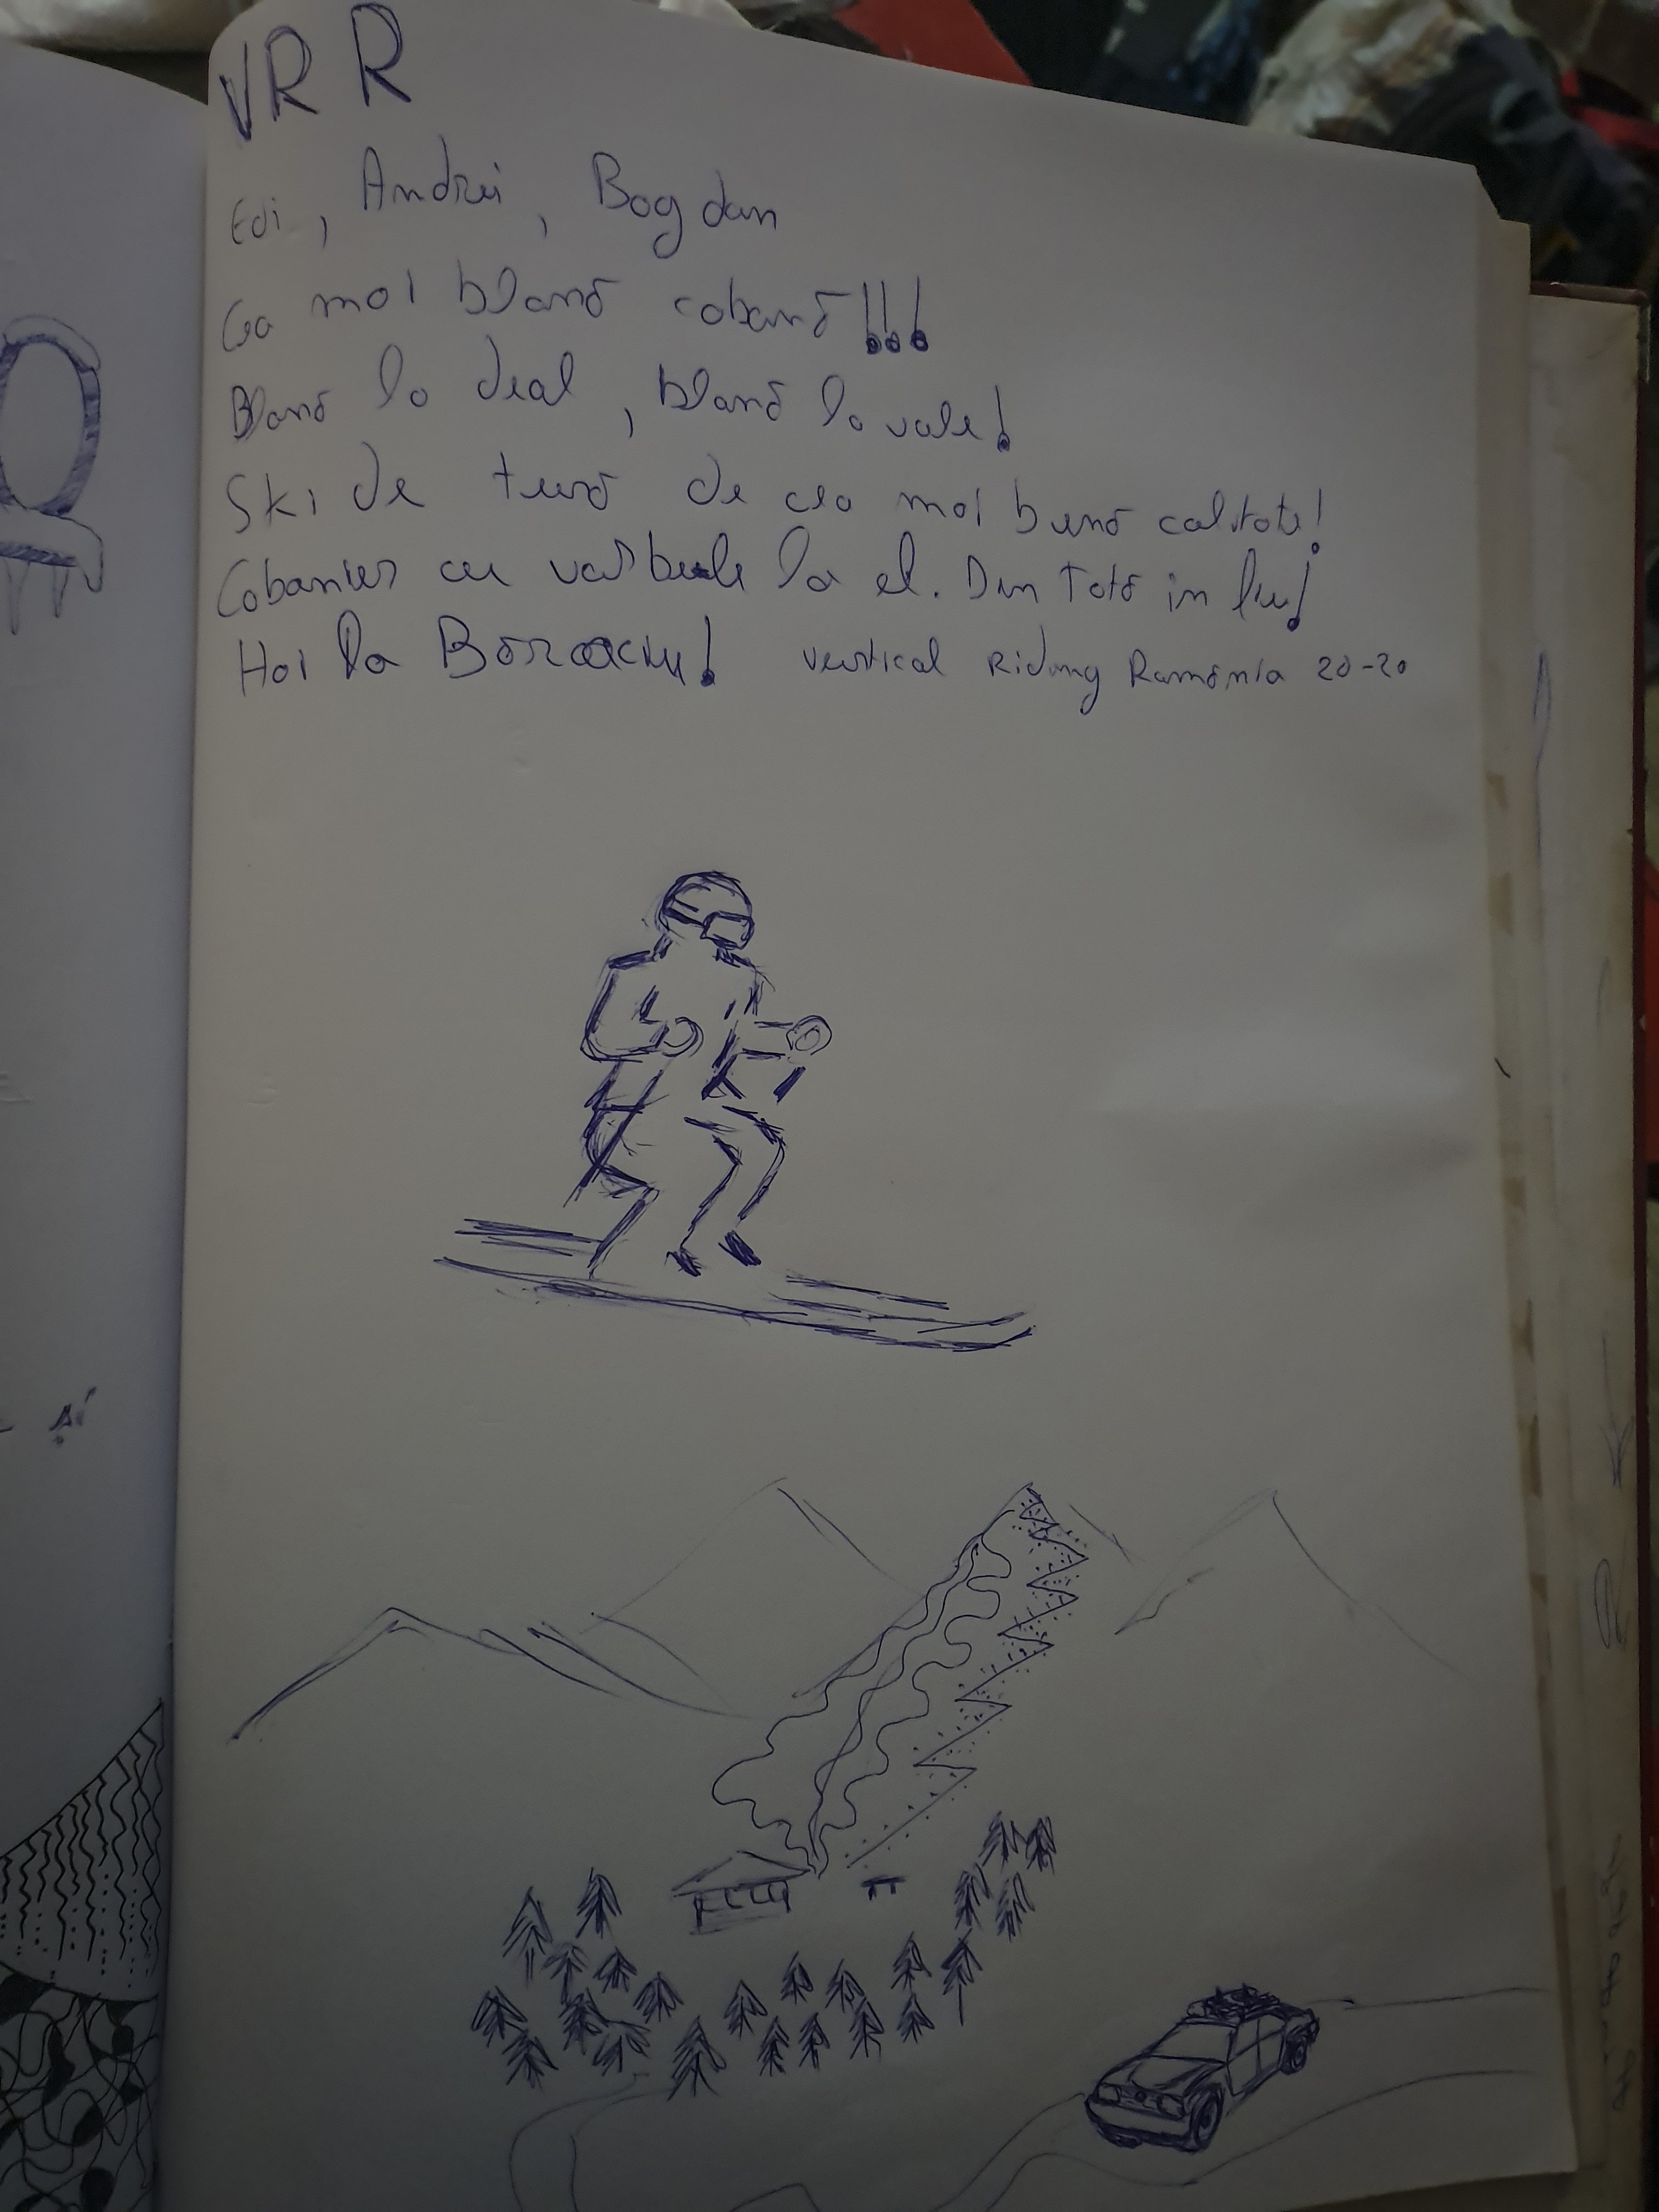 VRR
Edi, Andrei, Bogdan
Cea mai blană cabană!!!
Blană la deal, blană la vale!
Ski de tură de cea mai bună calitate!
Cabanier cu vorbele la el. Din Tată in fiu!
Hai la Bârcaciu! Vertical Riding România 20-20